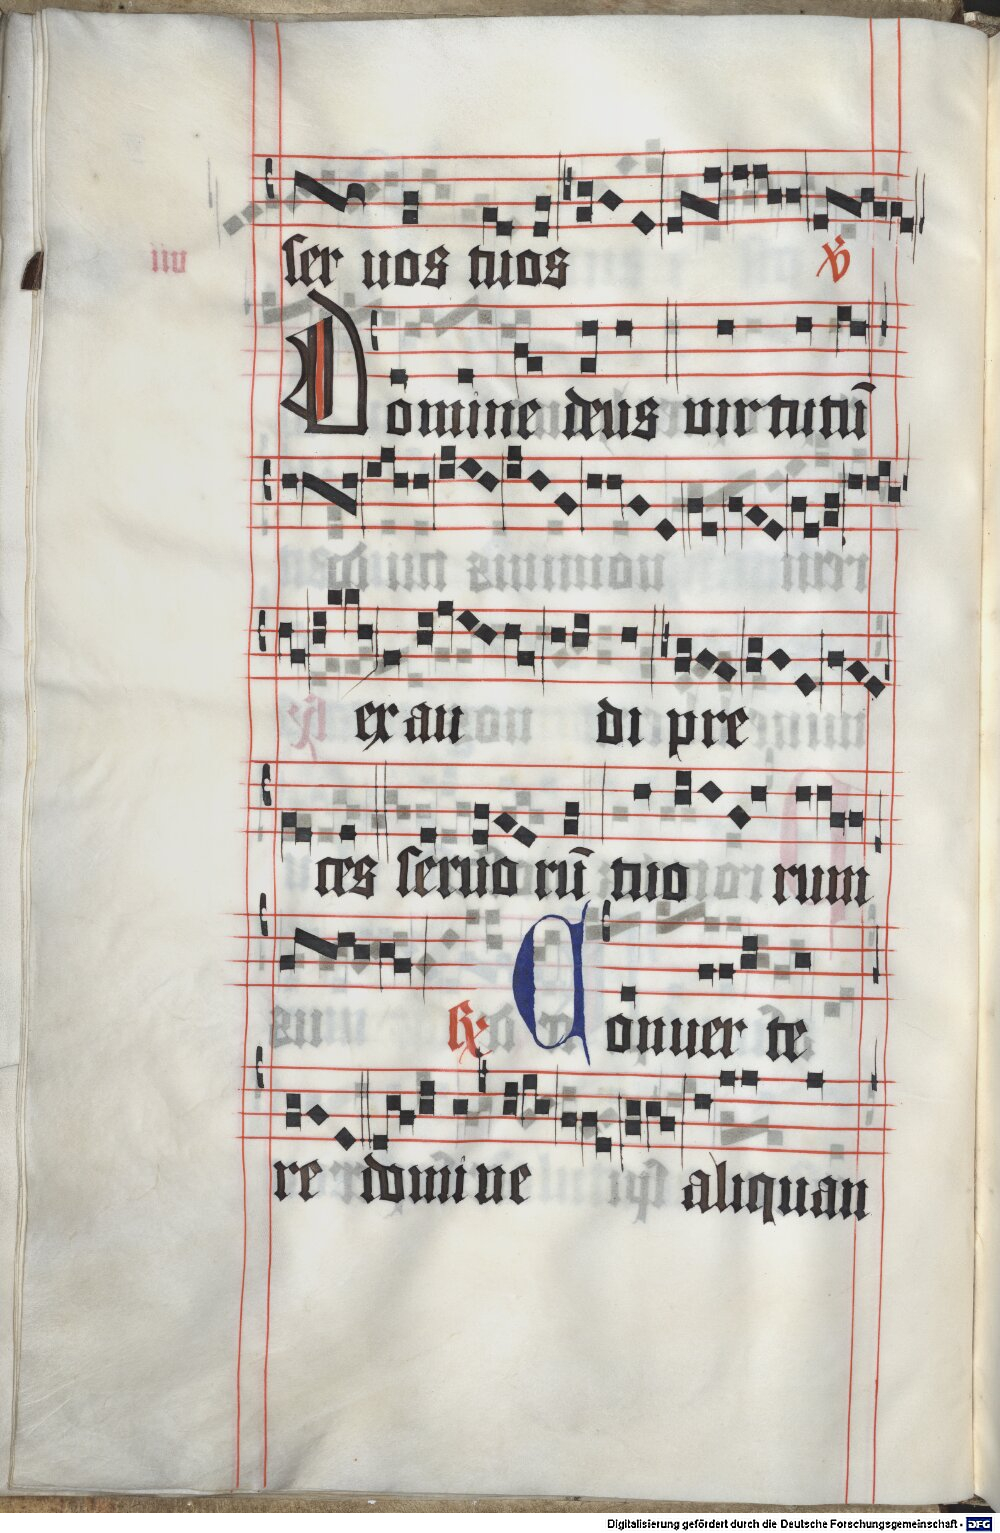 ser uos tuos ℣
Domine deus uirtutū
exau di pre
ces seruo rū tuo rum
℟ Conuer te
re domine aliquan
Digitalisierung gefördert durch die Deutsche Forschungsgemeinschaft - DFG